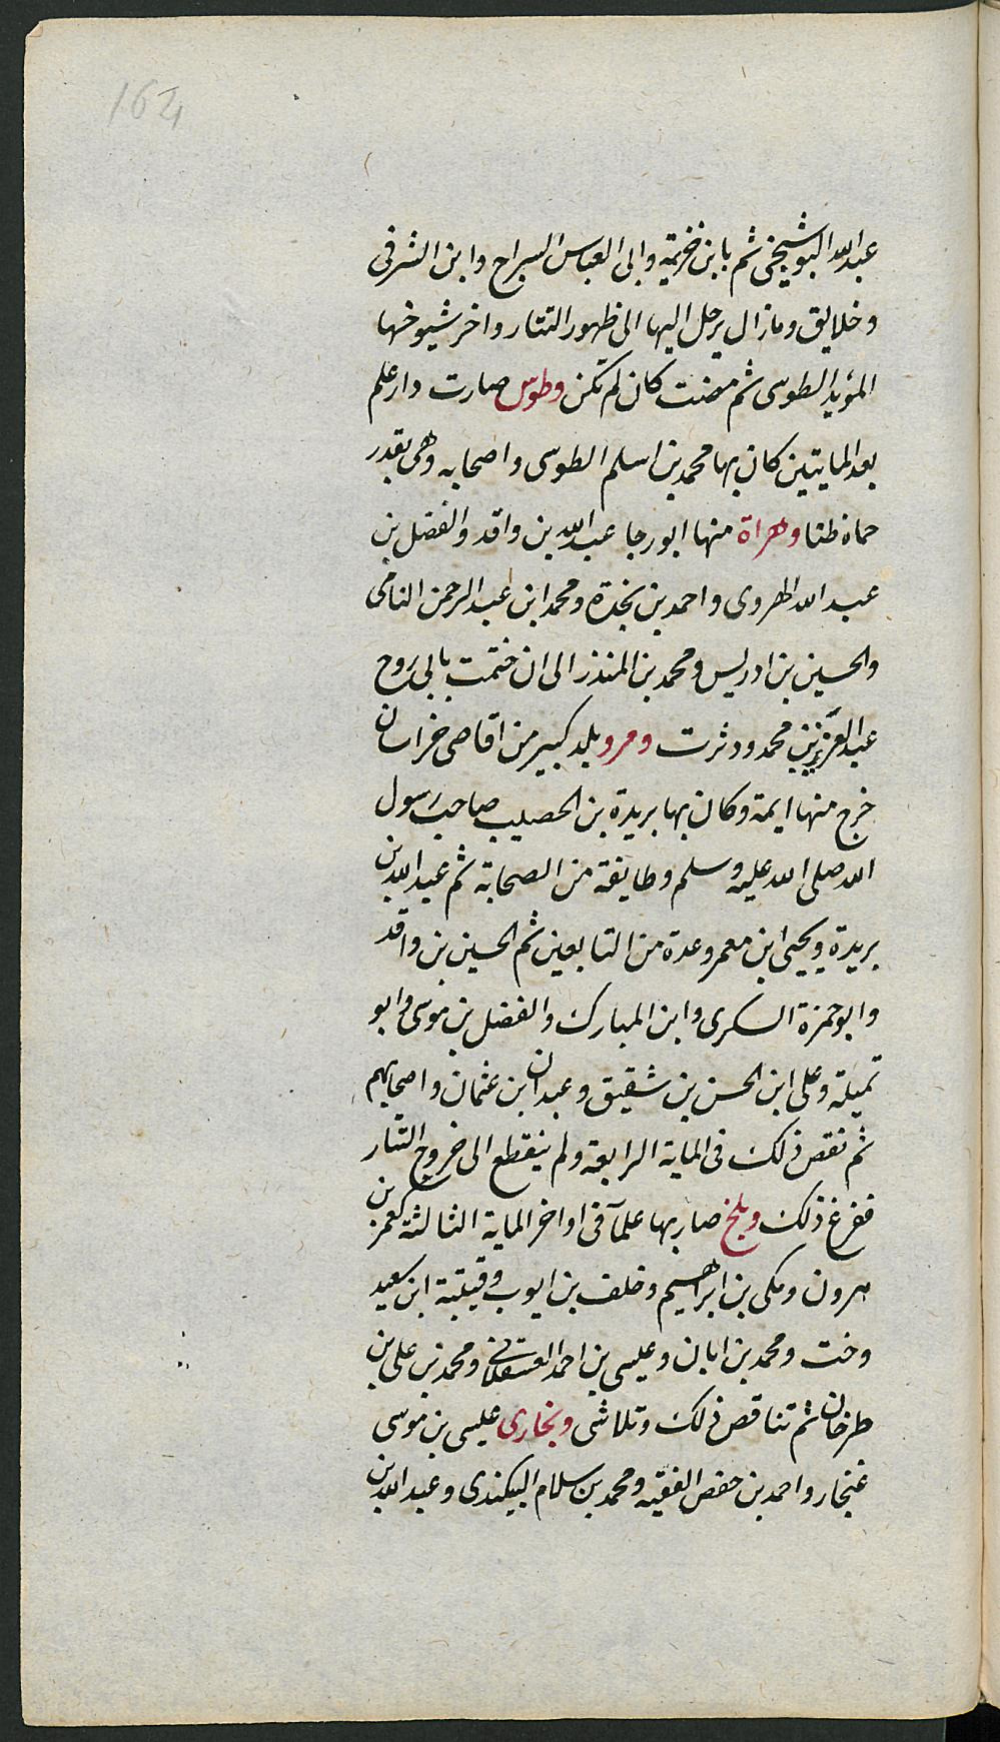 164
عبد الله البوشيخى ثم بابن خزيمة وابى العباس السراج وابن الشرقى
وخلايق ومازال يرحل اليها الى ظهور التتار واخر شيوخها
المؤيد الطوسى ثم مضت كان لم تكن وطوس صارت دار علم
بعد المايتين كان بها محمد بن اسلم الطوسى واصحابه وهى بقدر
حماة ظنا وهراة منها ابورجا عبد الله بن واقد والفضل بن
عبد الله الهروى واحمد بن نجدة ومحمد ابن عبد الرحمن النامى
والحسين بن ادريس ومحمد بن المنذر الى ان ختمت بابى روح
عبد العزيز بن محمد ودثرت ومرو بلد كبير من اقاصى خراسان
خرج منها ايمة وكان بها بريدة بن الحصيب صاحب رسول
الله صلى الله عليه وسلم وطايفة من الصحابة ثم عبد الله بن
بريدة ويحيى ابن معمر وعدة من التابعين ثم الحسين بن واقد
وابو حمزة السكرى وابن المبارك والفضل بن موسى وابو
تميلة وعلى ابن الحسن بن شقيق وعبدان ابن عثمان واصحابهم
ثم نقص ذلك فى الماية الرابعة ولم ينقطع الى خروج التتار
ففرغ ذلك وبلخ صار بها علمآ فى اواخر الماية الثالثة كعمر بن
هرون ومكى بن ابراهيم وخلف بن ايوب وقيتبة ابن سعيد
وخت ومحمد بن ابان وعليسى بن احمد العسقلانى ومحمد بن على بن
طرخان ثم تناقص ذلك وتلاشى وبخارى عليسى بن موسى
غنجار واحمد بن حفص الفقيه ومحمد بن سلام البيكندى وعبد الله بن